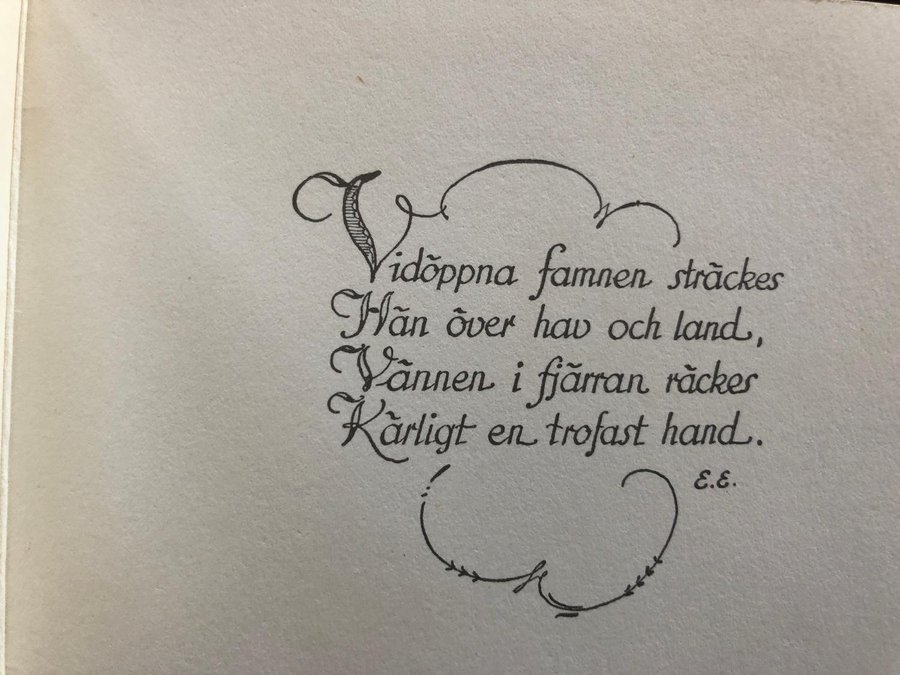 Vidöppna famnen sträckes
Hän över hav och land,
Vännen i fjärran räckes
Kärligt en trofast hand.
E.E.